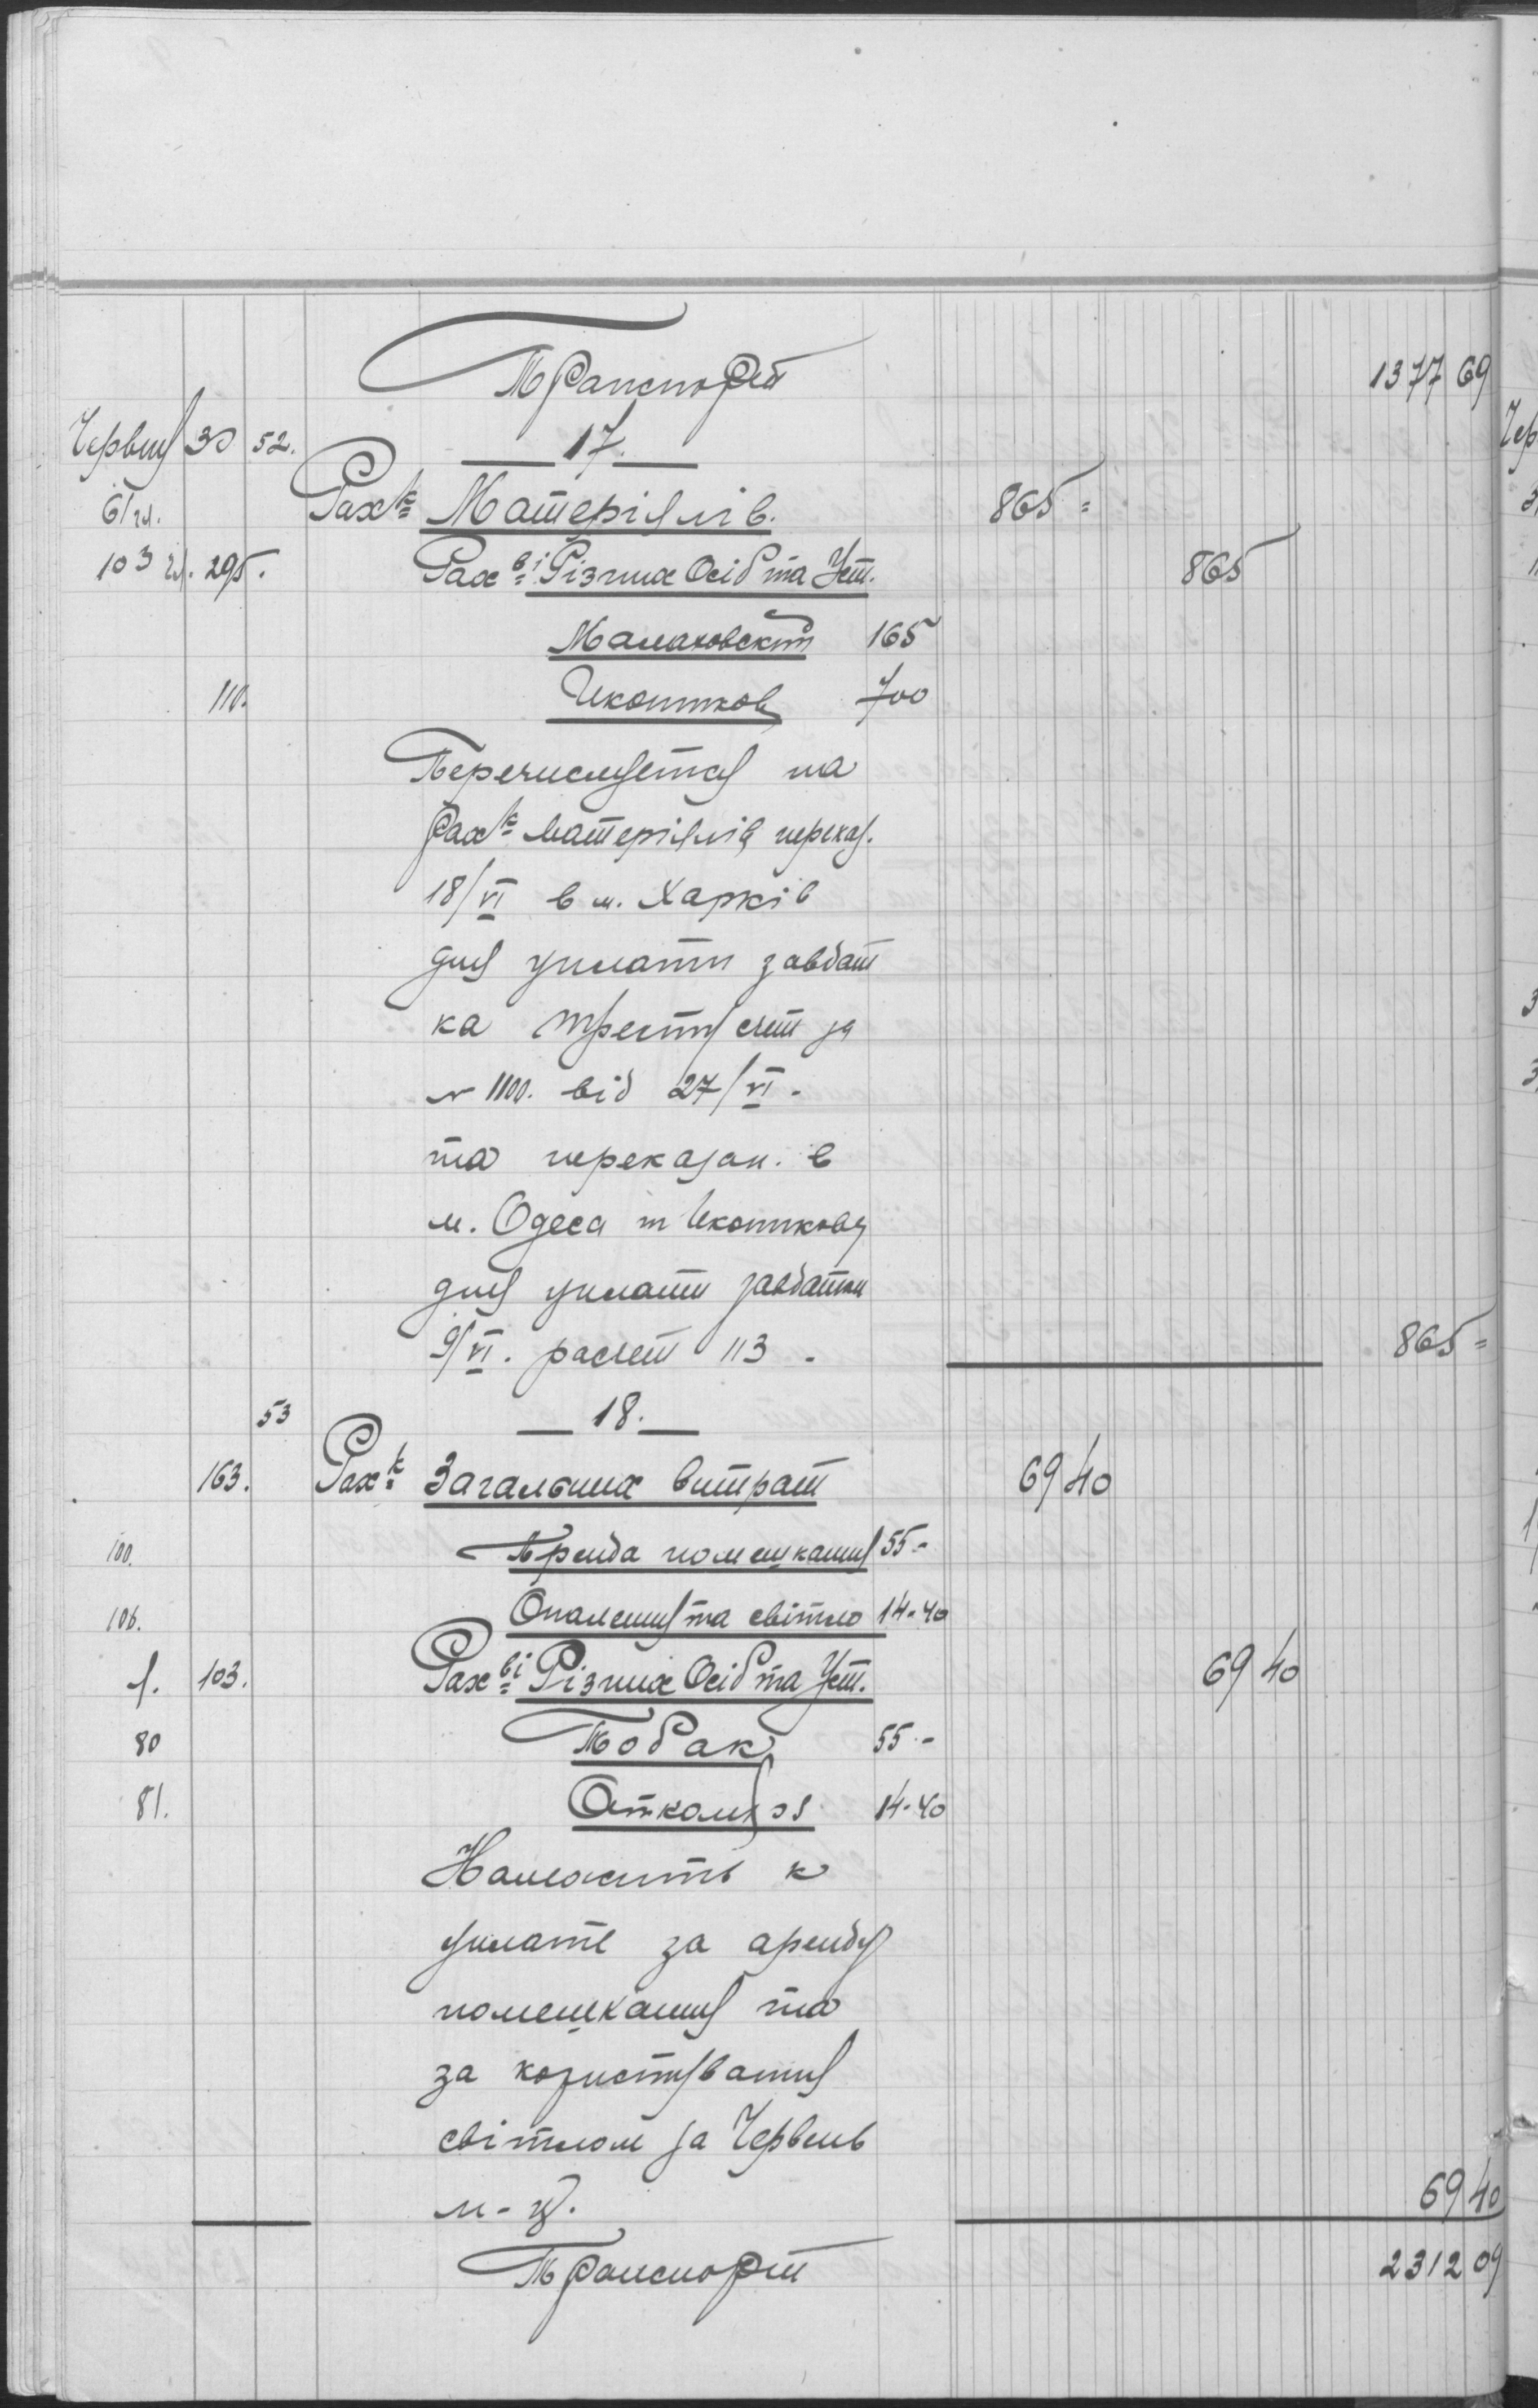 Транспорт 1377 69
Червня 30 52. 17.
6/гл. Рах-к Матеріялів. 865 =
103 гл. 295. Рах-ві Різних Осіб та Уст. 865
Малаховський 165
110. Икотников 700
Перечислуется на
Рах-к Матеріялів переказ.
18/VI в м. Харків
для уплати завдат
ка тресту счет за
№ 1100. від 27/VI.
та переказан. в
м. Одеса т Икотникову
для уплати завдатки
9/VI. расчет 113. 865 =
53 18.
163. Рах-к Загальних витрат 69 40
100. Аренда помешкання 55 =
106. Опалення та світло 14-40
103. Рах-ві Різних Осіб та Уст. 69 40
80 Кобак 55 -
81. Откомхоз 14-40
Належить к
уплате за аренду
помешкання та
за користування
світлом за Червень
м-ц. 69 40
Транспорт 2312 09